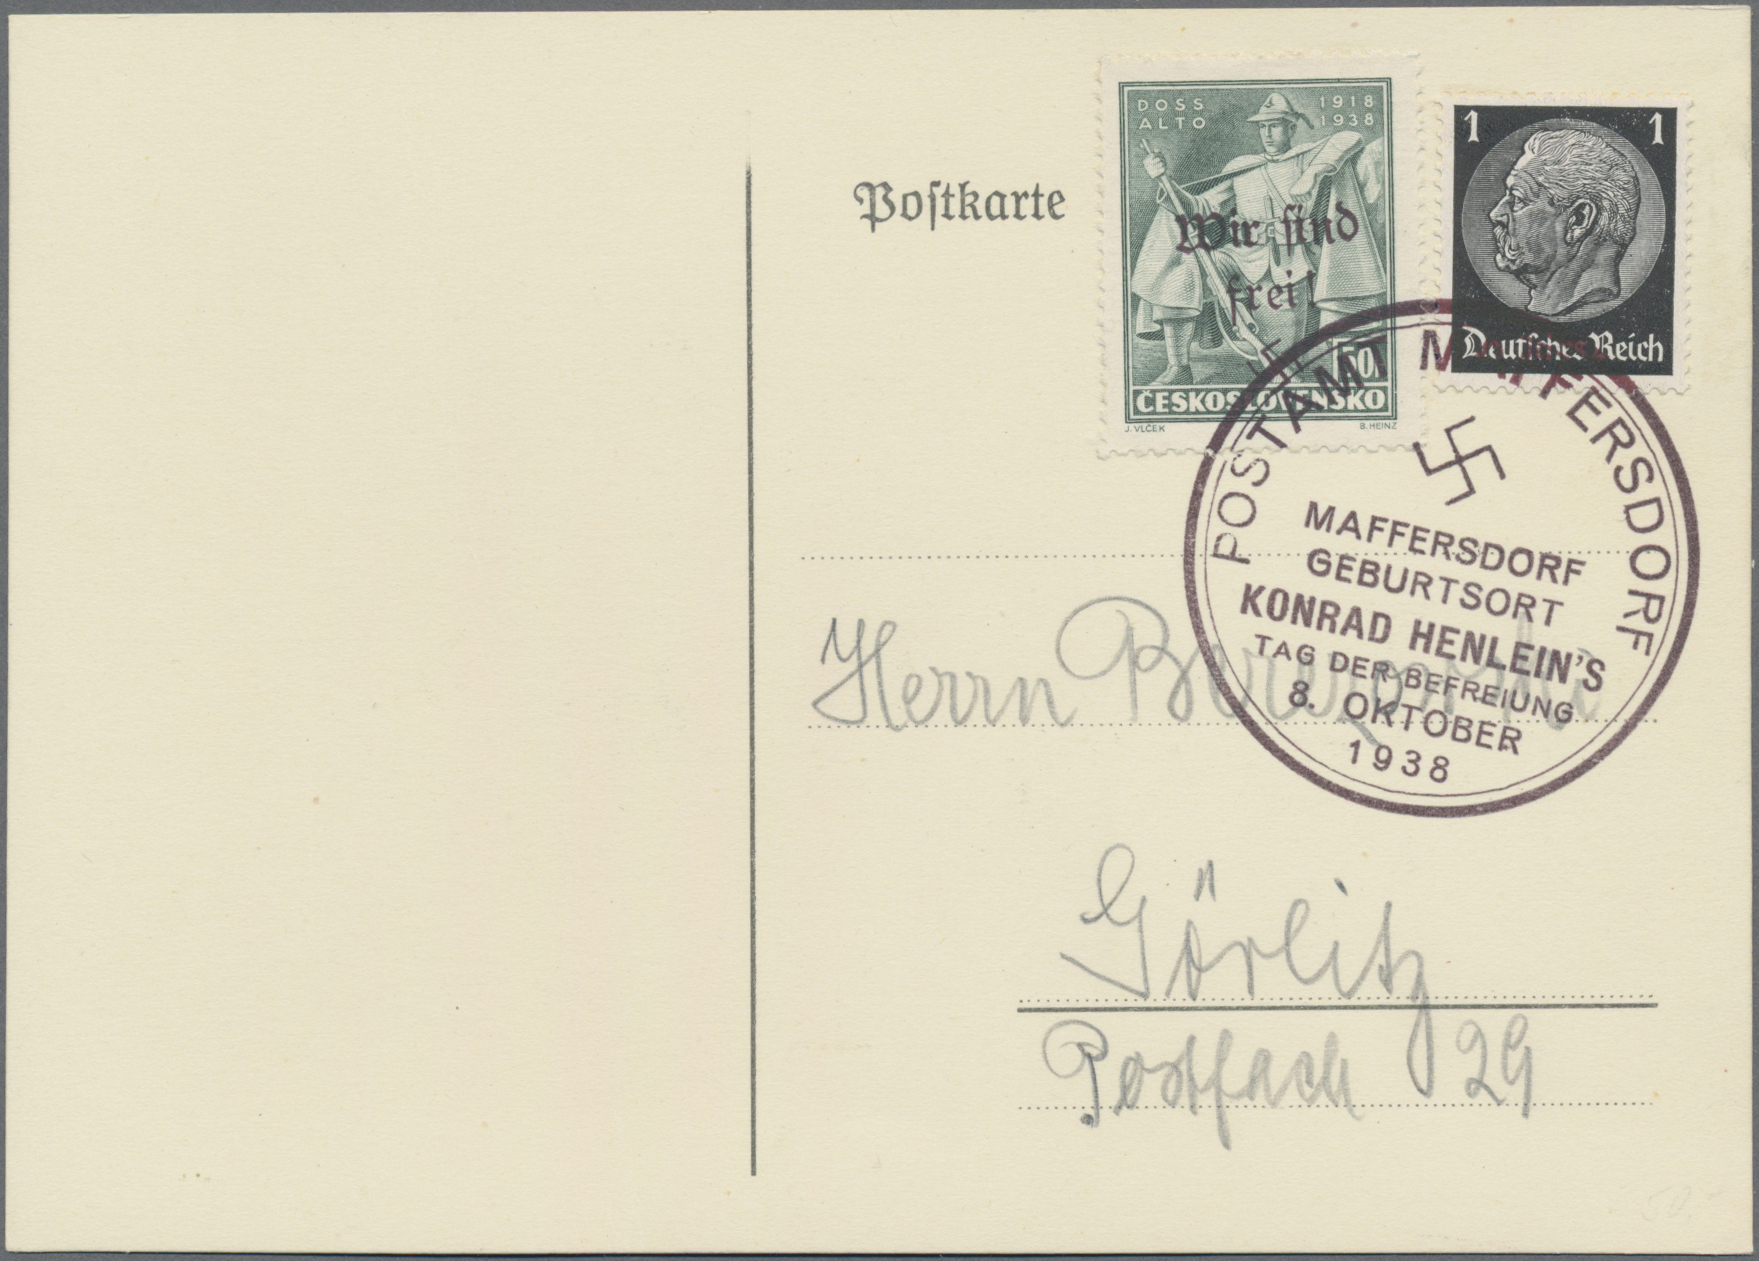 Postkarte
DOSS 1918
ALTO 1938
Wir sind
frei!
50
ČESKOSLOVENSKO
J. VLČEK B. HEINZ
1 1
Deutsches Reich
POSTAMT MAFFERSDORF
MAFFERSDORF
GEBURTSORT
KONRAD HENLEIN'S
TAG DER BEFREIUNG
8. OKTOBER
1938
Herrn
Görlitz
Postfach 29